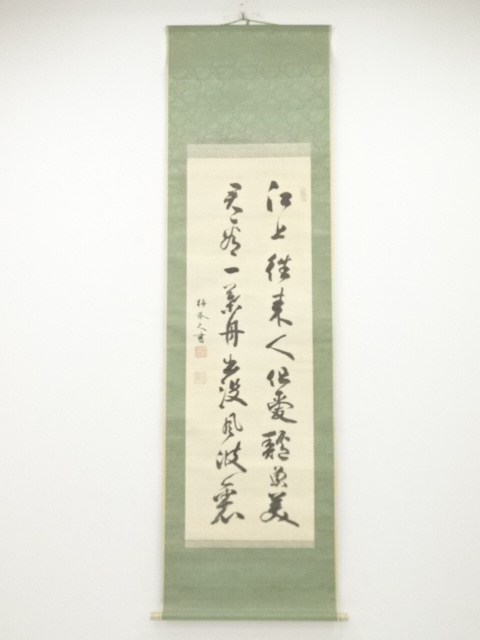 江上往来人但愛鱸魚美
君看一葉舟出没風波裏